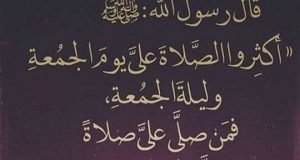 قال رسول الله: ﷺ
«أكثروا الصَّلاة عليَّ يومَ الجمُعةِ
وليلةَ الجمُعةِ،
فمَن صلَّى عليَّ صلاةً